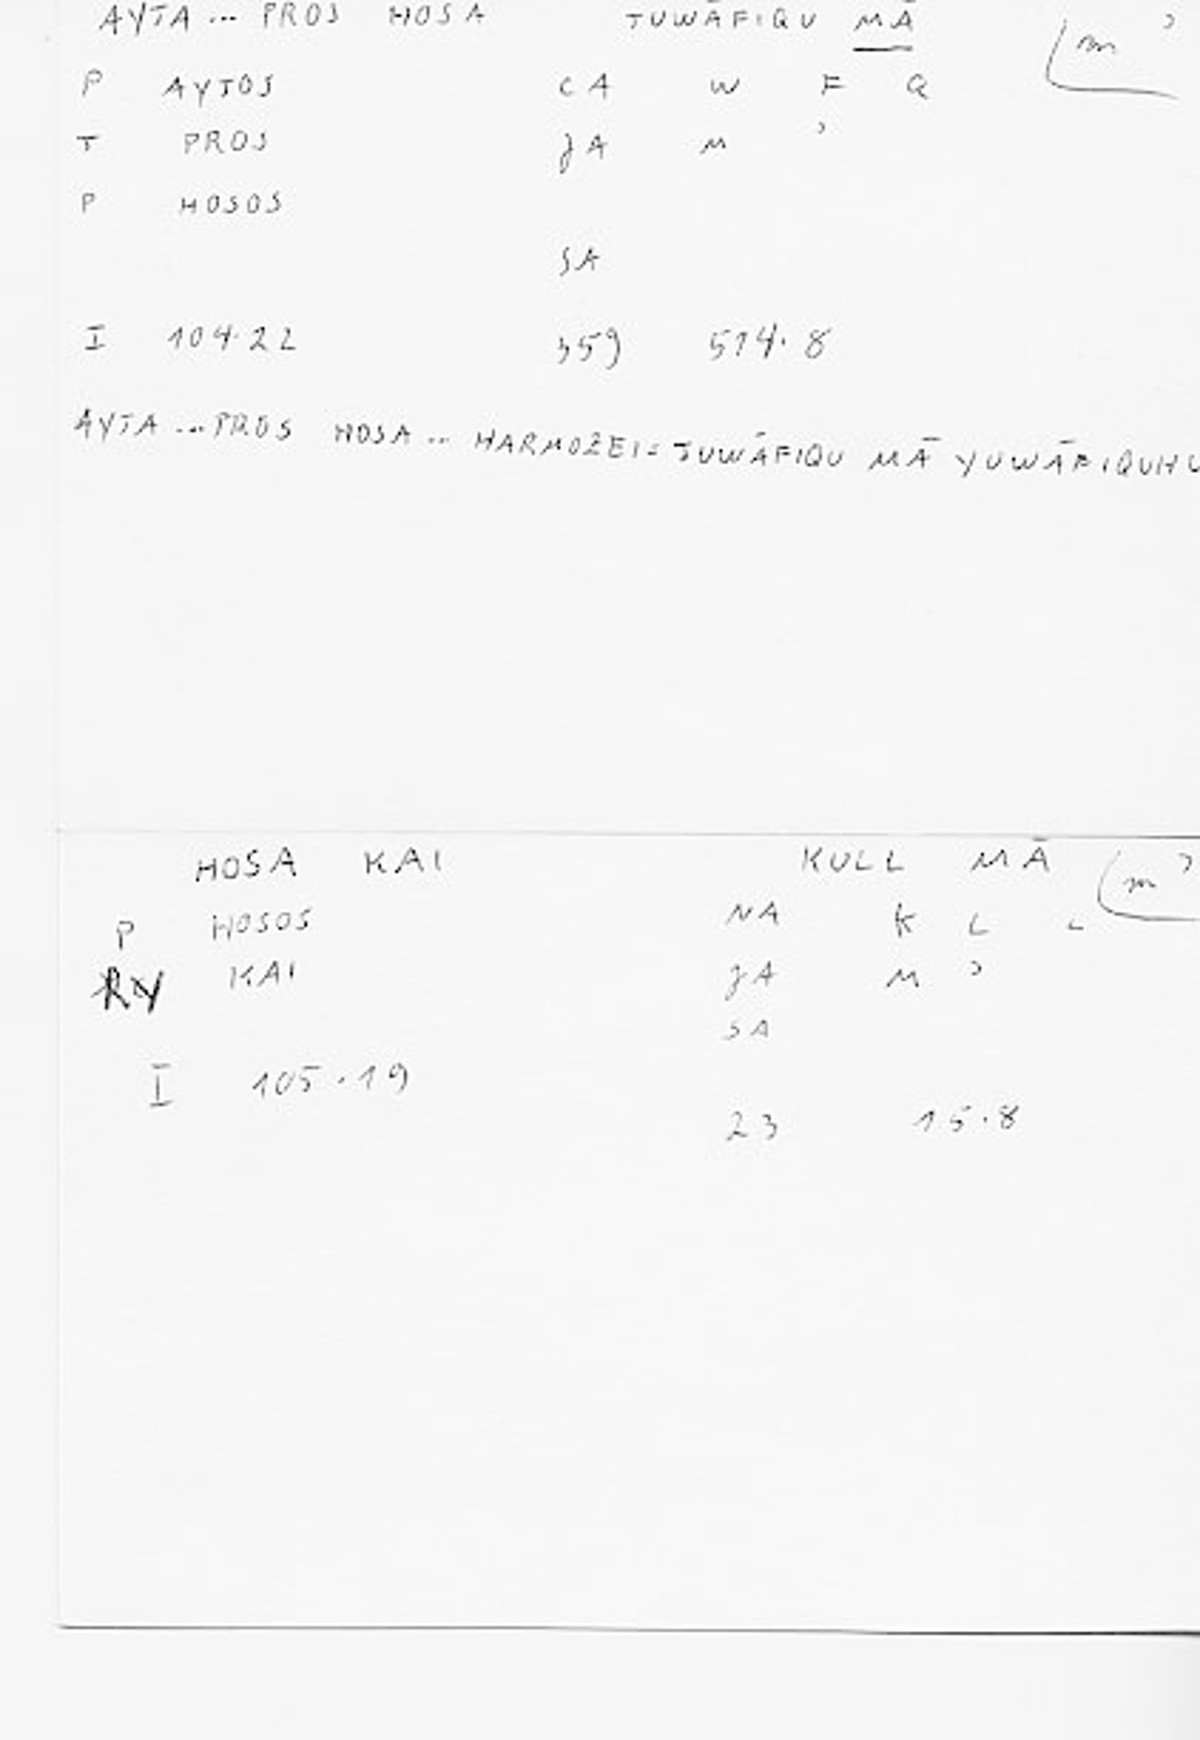 AYTA ... PROS HOSA TUWĀFIQU MĀ m ʾ
P AYTOS CA W F Q
T PROS JA M ʾ
P HOSOS
SA
I 104.22 359 514.8
AYTA ... PROS HOSA ... HARMOZEI = TUWĀFIQU MĀ YUWĀFIQUHU
HOSA KAI KULL MĀ m ʾ
P HOSOS NA K L L
RY KAI JA M ʾ
SA
I 105.19
23 15.8